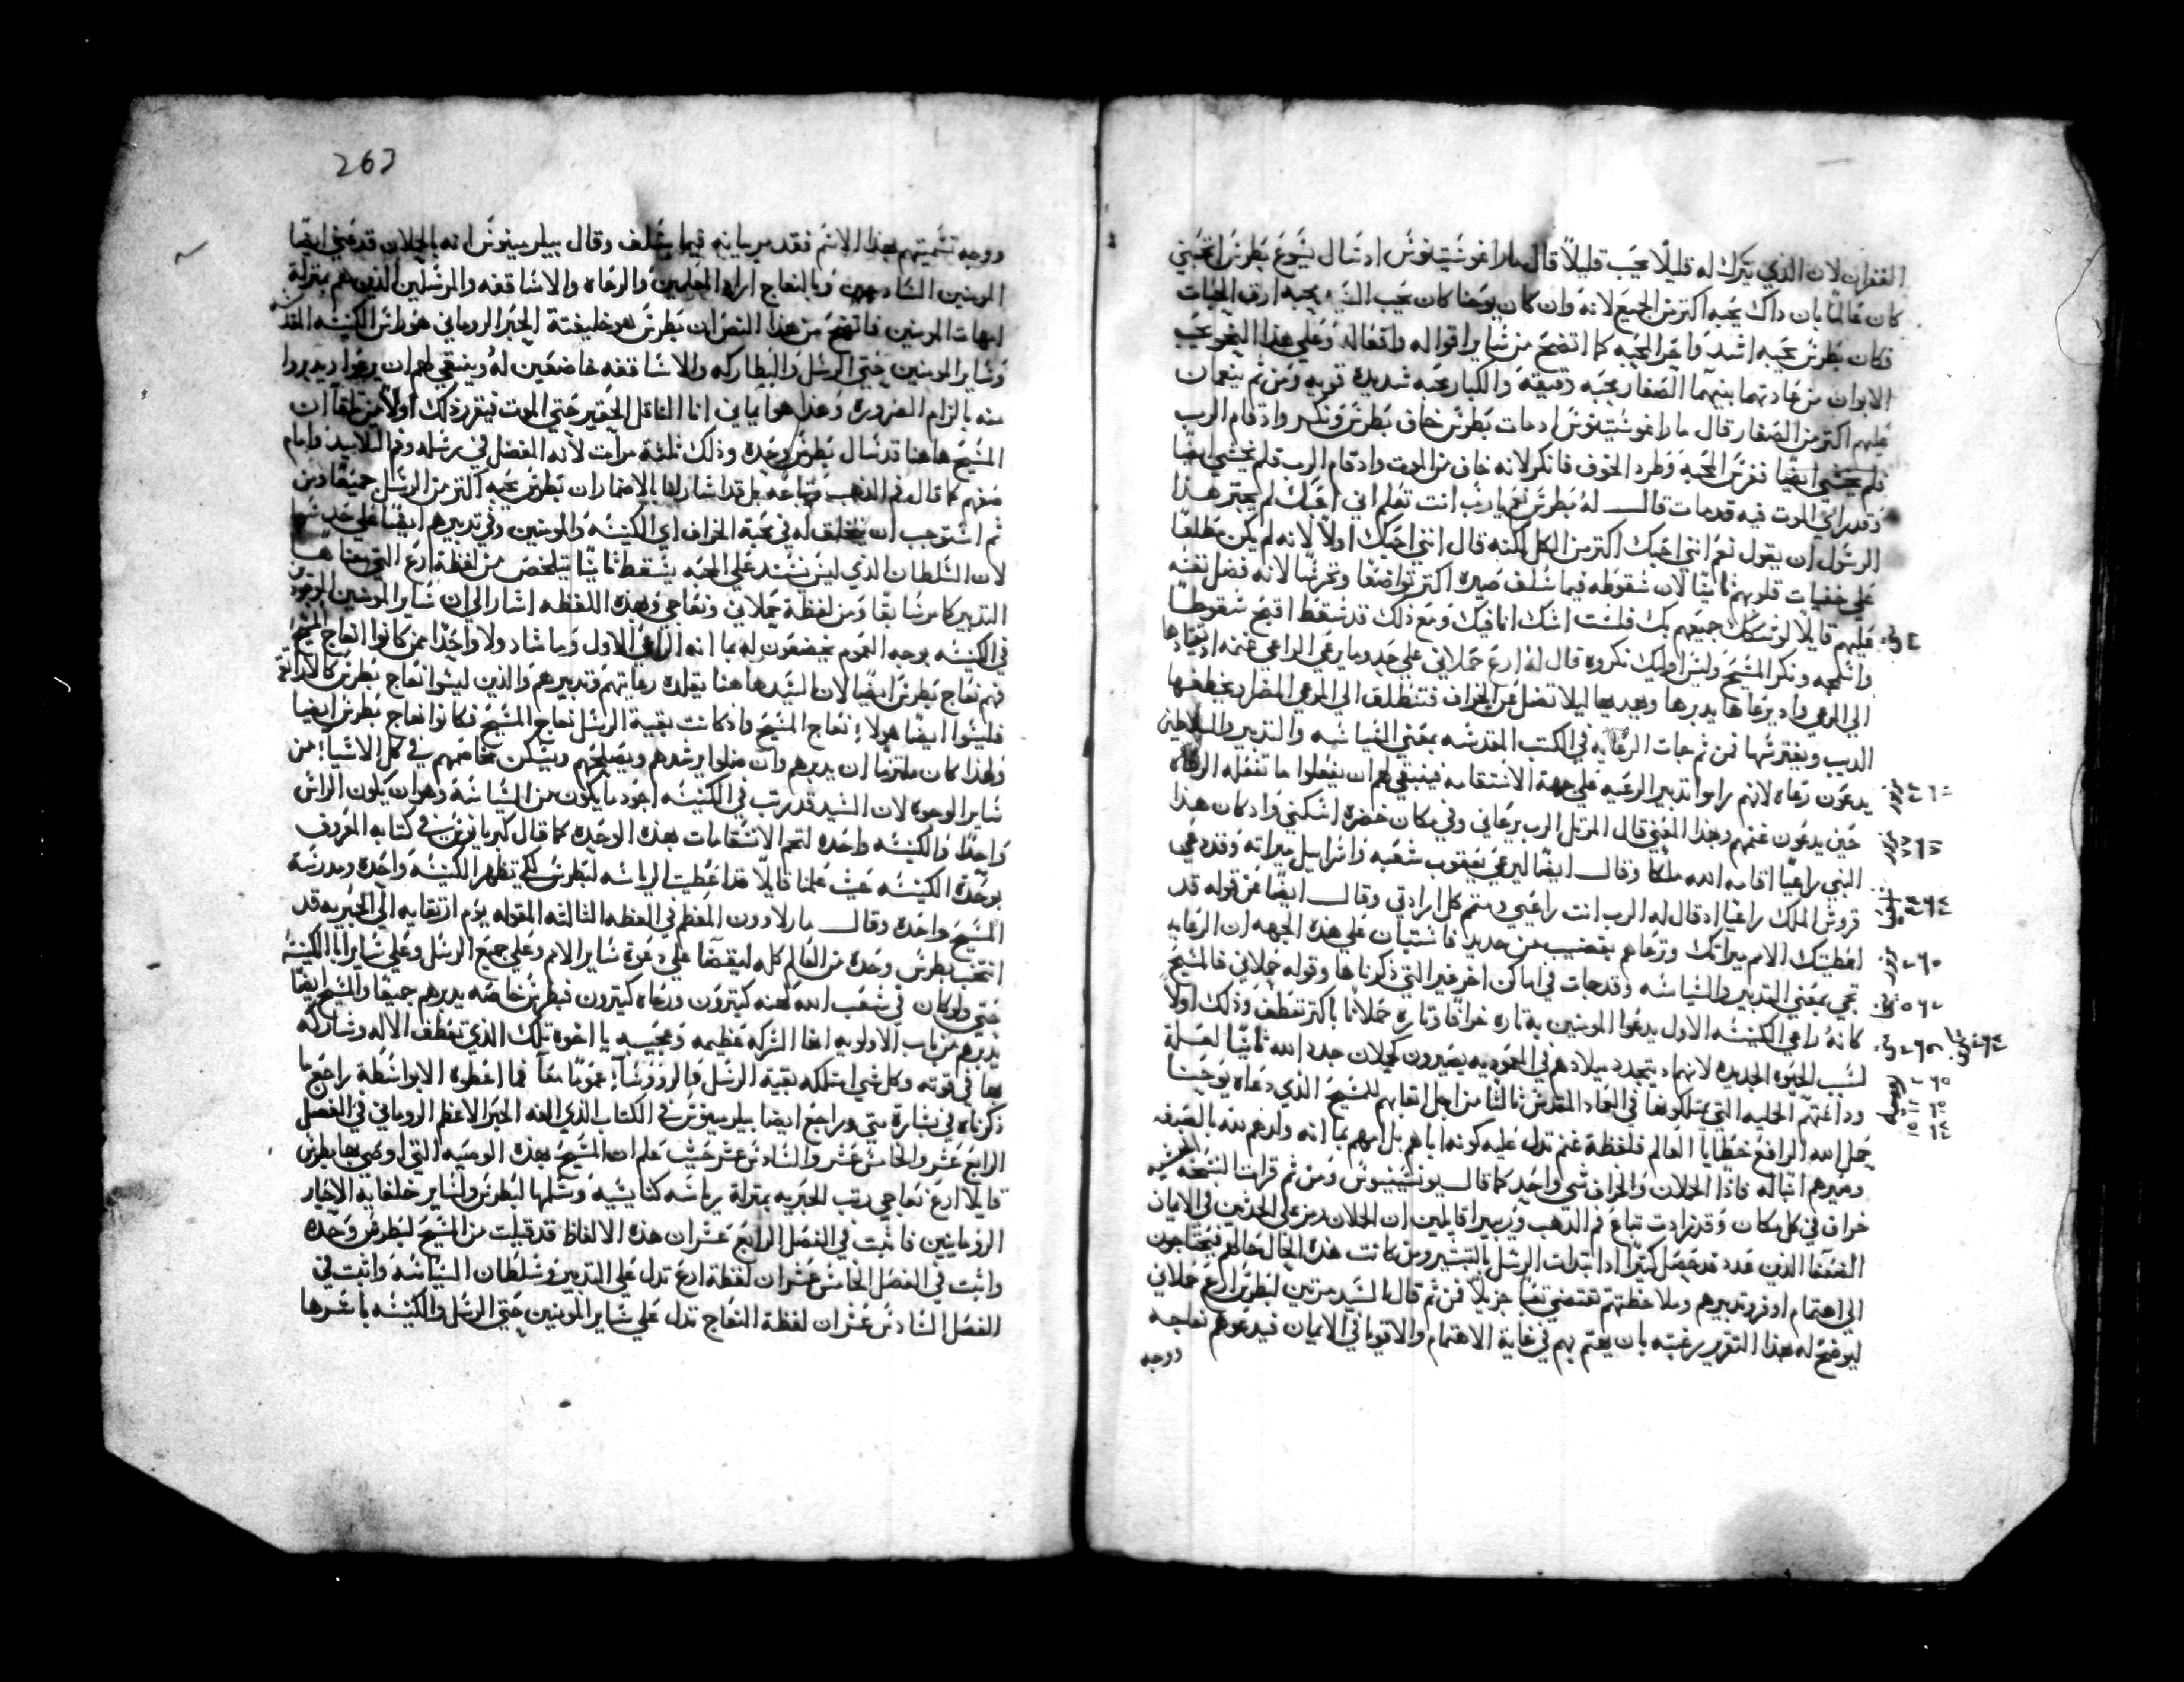 الغفران لان الذي يترك له قليلًا يحب قليلًا قال مارا غوشتينوس اذ سال يسوع بطرس اتحبني
كان عالمًا بان داك يحبه اكتر من الجميع لانه وان كان يوحنا كان يحب السيد بمحبه ارق الحيات
فكان بطرس يحبه اشد واحر المحبه كما اتضح من ساير اقواله وافعاله وعلي هذا النحو يحب
الابوان من عادتهما بنيهما الصغار بمحبه رقيقه والكبار بمحبه شديده قويه ومن ثم ينعمان
عليهم اكتر من الصغار قال مارا غوشتينوس اد مات بطرس خاف بطرس ونكر واد قام الرب
فلم يخشي ايضًا نغرس المحبه وطرد الخوف فانكر لانه خاف من الموت واد قام الرب فلم يخشي ايضًا
وقد راي الموت فيه قد مات قال له بطرس نعم يارب انت تعلم اني احبك لم يجتر هذا
الرسول ان يقول نعم انني احبك اكتر من الكل لكنه قال انني احبك اولًا لانه لم يكن مطلعًا
علي خفيات قلوبهم ثانيًا لان سقوطه فيما سلف صيره اكتر تواضعًا وتحرسًا لانه فضل نفسه
عليهم قايلًا لو شكك جميعهم بك فلست اشك انا فيك ومع ذلك قد سقط اقبح سقوطًا
واسمجه ونكر المسيح وليس اوليك نكروه قال له ارع حملاني علي حد وما يرعي الراعي غنمه اد يقتادها
الي المرعي واد يرعاها يدبرها ويهديها ليلا تضل عن الخراف فتنطلق الي المرعي المضاد يخطفها
الديب ويفترسها فمن ثم جات الرعايه في الكتب المقدسه بمعني السياسه والتدبير والسلاطين
يدعون رعاه لانهم راموا تدبير الرعيه علي جهة الاستقامه فينبغي لهم ان يفعلوا ما تفعله الرعاه
حين يدعون غنمهم وبهذا المعني قال المرتل الرب يرعاني وفي مكان خضره اسكنني واد كان هذا
النبي راعيًا اقامه الله ملكا وقال ايضًا ليرعي يعقوب شعبه واسراييل ميراته وقد دعي
قروش الملك راعيًا اد قال له الرب انت راعيي وستتم كل ارادتي وقال ايضًا عن قوله قد
اعطيتك الامم ميراتك وترعاهم بقضيب من حديد فاستبان علي هذه الجهه ان الرعايه
تجي بمعني التدبير والسياسه وقد جات في اماكن اخر غير التي ذكرناها وقوله حملاني فالمسيح
كانه راعي الكنيسه الاول يدعوا المومنين به تاره خرافا وتاره حملانًا باكتر تعطف وذلك اولًا
لسبب الحيوه الجديده لانهم اد يتجدد ميلادهم في المعموديه يصيرون كحملان جدد الله ثانيًا لعلة
وداعتهم الحليه التي يمتلكونها في العماد المقدس ثالثًا من اجل اتباعهم للمسيح الذي دعاه يوحنا
حمل الله الرافع خطايا العالم فلفظة غنم تدل عليه كونه اباهم بل امهم بما انه ولدهم لله بالصرفه
وصيرهم انباله فاذا الحملان والخراف شي واحد كما قال يونسينيوس ومن ثم قرات النسخه
خراف في كل مكان وقد زادت تباع فم الدهب وزيبيرا قايلين ان الحملان رمز علي الحديثين في الايمان
الضعفا الذين عدد قد حصل كتيرًا اد ابتدات الرسل بالتبشير ومن كانت هذه الحال حالهم فيحتاجون
الي اهتمام اوفر وتدبيرهم وملاحظتهم تقتضي تعبًا جزيلًا فمن ثم قال السيد مرتين لبطرس ارع حملاني
ليوضح له بهذا التقرير رغبته بان يهتم بهم في غاية الاهتمام والاقويا في الايمان فيدعوهم نعاجه
ووجه
263
ووجه تسميتهم بهذا الاسم فقد مر بيانه فيما سلف وقال بيلرمينوس انه بالحملان قد عني ايضًا
المومنين السادجين وبالنعاج اراد المعلمين والرعاه والاساقفه والمرسلين الذين هم بمنزلة
امهات المومنين فاتضح من هذا النص ان بطرس هو خليفته الحبر الروماني هو راس الكنيسه المقدسه
وساير المومنين حتي الرسل والبطاركه والاساقفه خاضعين له وينبغي لهم ان يرعوا ويدبروا
منه بالزام الضروره وهذا هو ايماني انا الناقل الحقير حتي الموت فيتقرر ذلك اولًا من تلقا ان
المسيح هاهنا قد سال بطرس وحده وذلك ثلثة مرات لانه المفضل في رسله وفم التلاميد وامام
صفهم كما قال فم الذهب وتباعه بل قد اشار لها بالاضمار ان بطرس يحبه اكتر من الرسل جميعًا ومن
ثم استوجب ان يخلف له في محبة الخراف اي الكنيسه والمومنين وفي تدبيرهم ايضًا علي حد سوا
لان السلطان الذي ليس يستند علي المحبه يسقط ثانيًا يتلخص من لفظة ارع التي معناها
التدبير كما مر سابقًا ومن لفظة حملاني ونعاجي وبهذه اللفظه اشار الي ان ساير المومنين الموجودين
في الكنيسه بوجه العموم يخضعون له بما انه الراعي الاول وما شاد ولا واحدًا ممن كانوا نعاج المسيح
فهم نعاج بطرس ايضًا لان السيد هاهنا يقلده رعايتهم وتدبيرهم والذين ليسوا نعاج بطرس كالاراتقه
فليسوا ايضًا هولاء نعاج المسيح واذ كانت بقية الرسل نعاج المسيح فكانوا نعاج بطرس ايضًا
ولهذا كان ملتزما ان يدبرهم وان ضلوا يرشدهم ويصلحهم ويسكن تخاصمهم في كل الاشيا من
ساير الوجوه لان السيد قد رتب في الكنيسه اجود ما يكون من السياسه وهو ان يكون الراس
واحدًا والكنيسه واحده لتتم الاستقامات بهذه الوحده كما قال كبريانوس في كتابه المعروف
بوحدة الكنيسه حيث علمنا قايلًا قد اعطيت الرياسه لبطرس لكي تظهر الكنيسه واحده ومدرسة
المسيح واحده وقال مار لاوون المعظم في العظه الثالثه المقوله يوم ارتقايه الي الحبريه قد
انتخب بطرس وحده من العالم كله ليقضا علي دعوة ساير الامم وعلي جميع الرسل وعلي ساير ابا الكنيسه
حتي ولو كان في شعب الله كهنه كتيرون ورعاه كتيرون فبطرس خاصه يدبرهم جميعًا والمسيح ايضًا
يدبرهم من باب الاولويه انها الشركه عظيمه وعجيبه يا اخوه تلك الذي تعطف الاله وشاركه
بها في قوته وكل شي امتلكه بقية الرسل والرووسآء عمومًا معآ فما اعطوه الا بواسطة راجع ما
ذكرناه في بشارة متي وراجع ايضا بيلرمينوس في الكتاب الذي الفه الحبر الاعظم الروماني في الفصل
الرابع عشر والخامس عشر والسادس عشر حيث علم ان المسيح بهذه الوصيه التي اوصي بها بطرس
قايلًا ارع نعاجي رتب الحبريه بمنزلة رياسه كنايسيه وسلمها لبطرس ولساير خلفايه الاحبار
الرومانيين فاثبت في الفصل الرابع عشر ان هذه الالفاظ قد قيلت من المسيح لبطرس وحده
واثبت في الفصل الخامس عشر ان لفظة ارع تدل علي التدبير وسلطان السياسه واثبت في
الفصل السادس عشر ان لفظة النعاج تدل علي ساير المومنين حتي الرسل والكنيسه باسرها